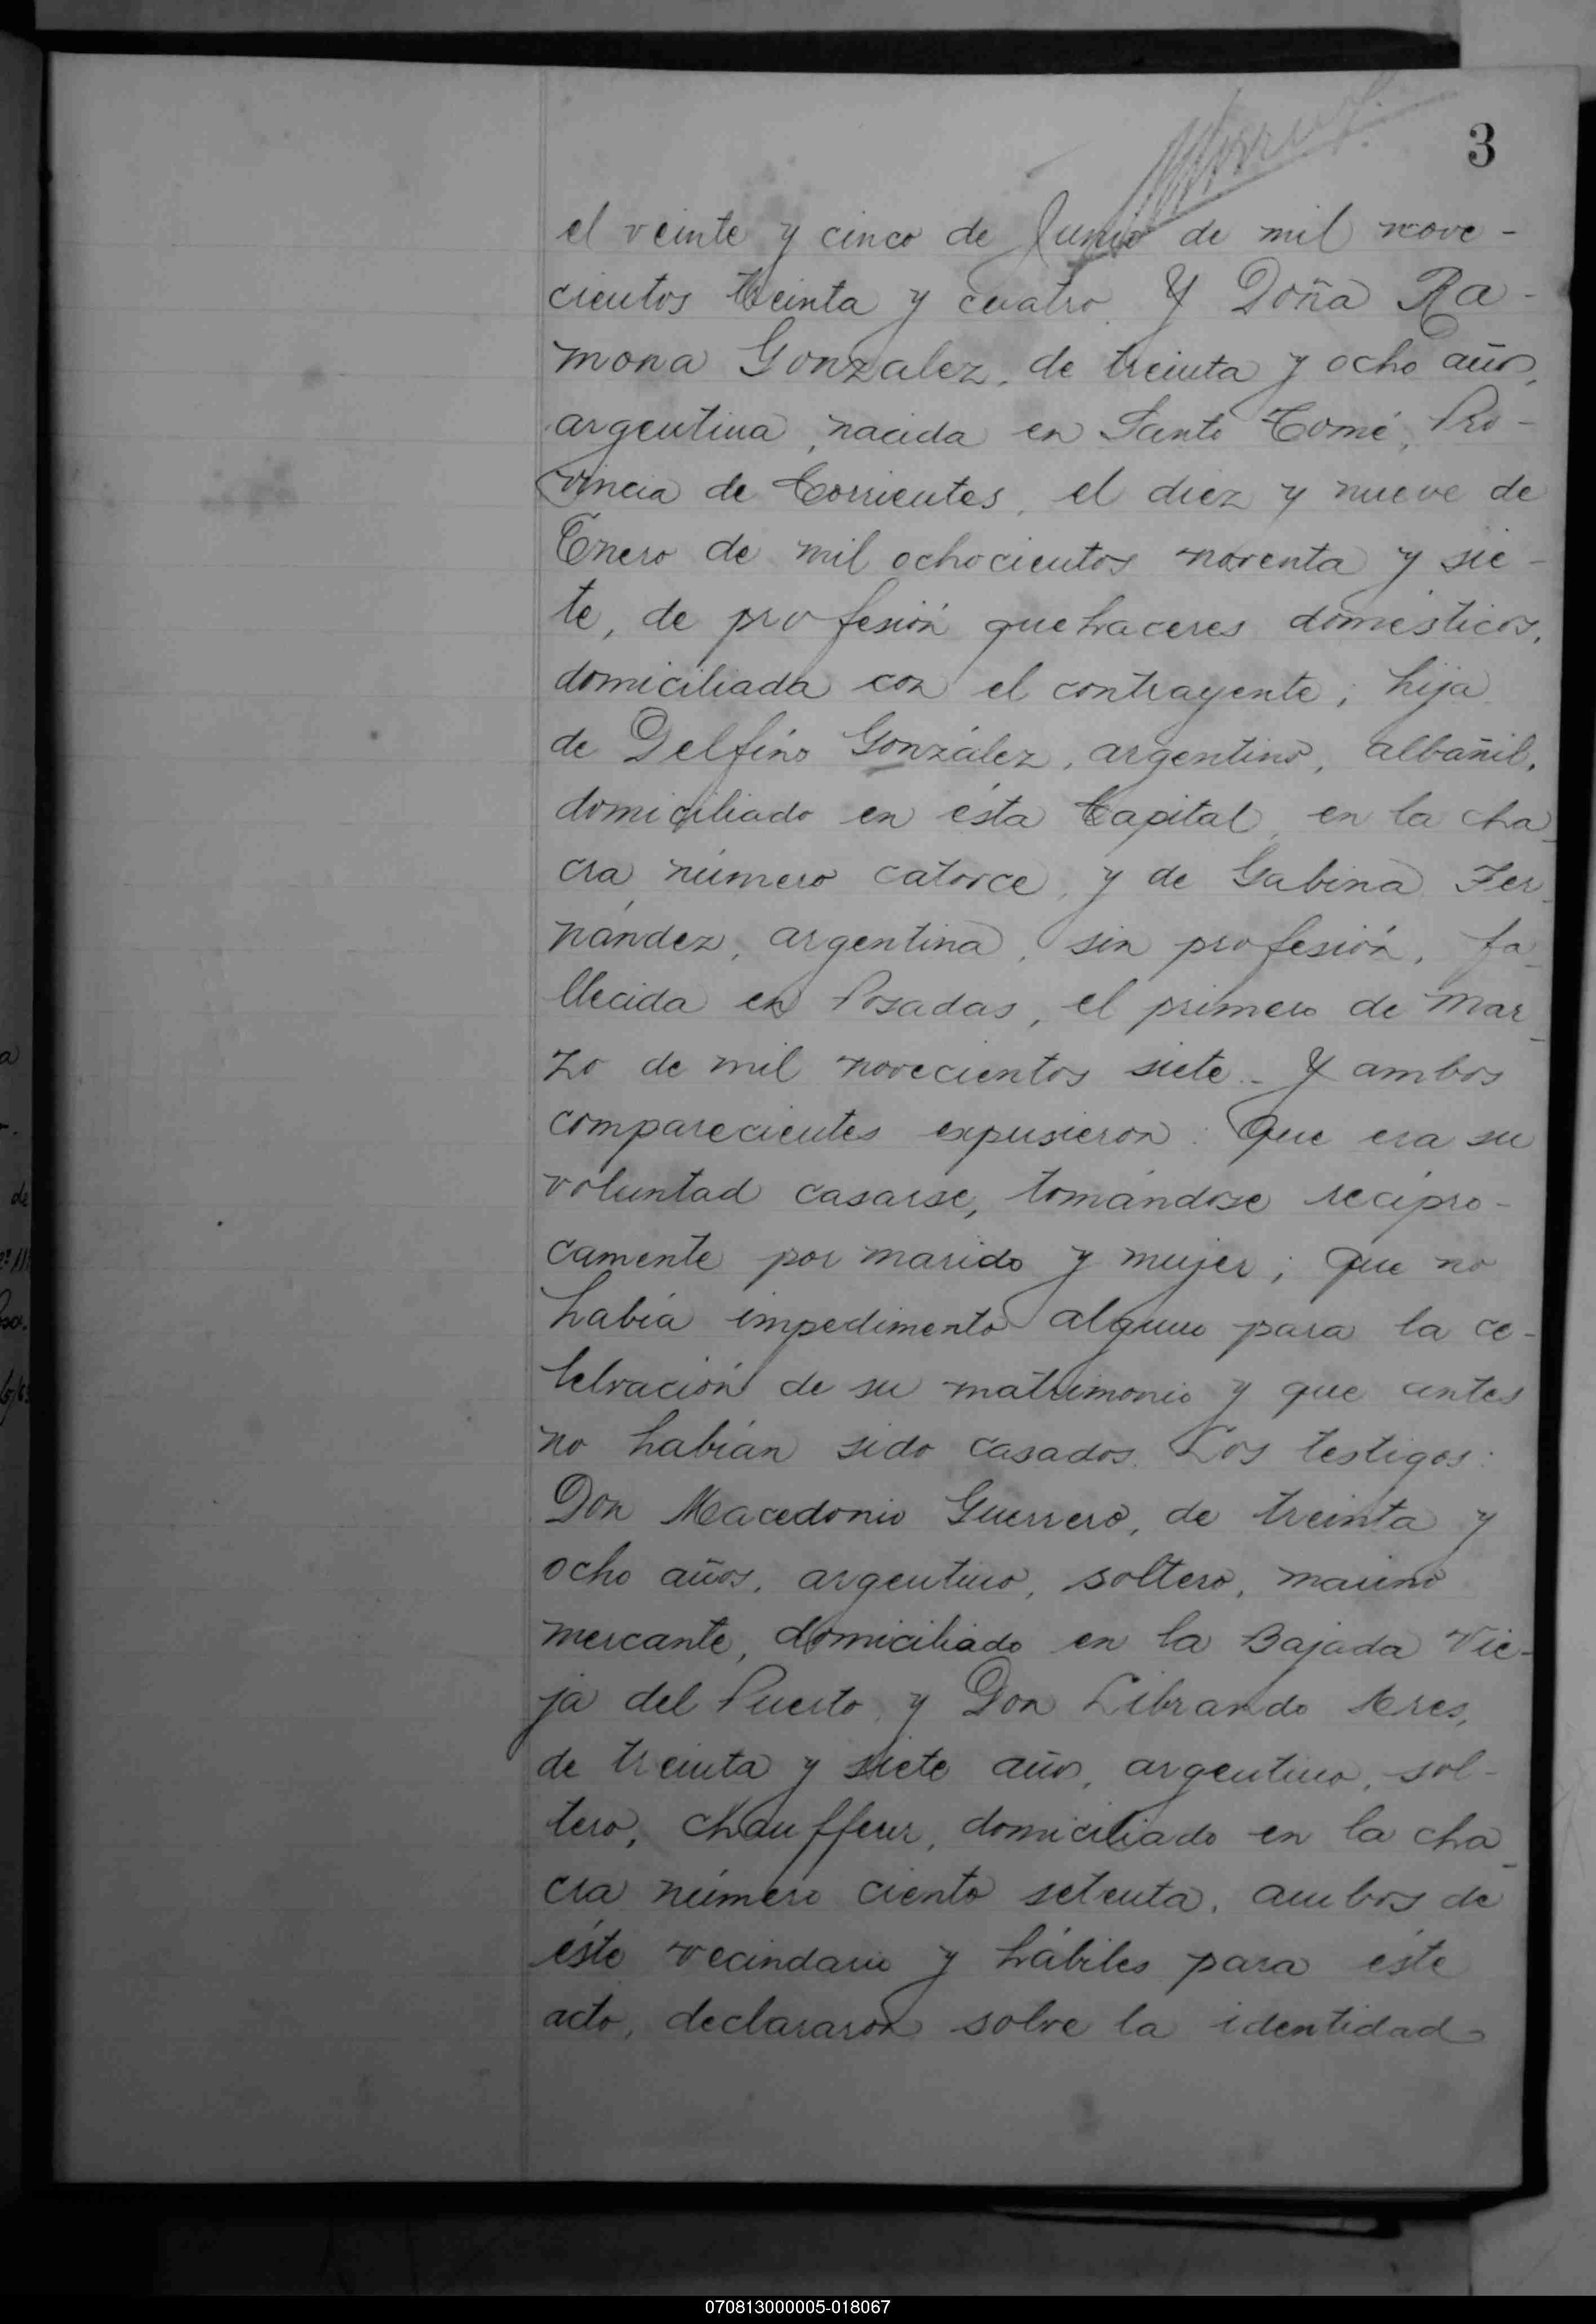 3
el veinte y cinco de Junio de mil nove-
cientos treinta y cuatro. Y Doña Ra-
mona Gonzalez, de treinta y ocho años,
argentina, nacida en Santo Tomé, Pro-
vincia de Corrientes, el diez y nueve de
Enero de mil ochocientos noventa y sie-
te, de profesión quehaceres domésticos,
domiciliada con el contrayente; hija
de Delfino González, argentino, albañil,
domiciliado en ésta Capital, en la cha-
cra número catorce, y de Gabina Fer-
nández, argentina, sin profesión, fa-
llecida en Posadas, el primero de Mar-
zo de mil novecientos siete.- Y ambos
comparecientes expusieron: Que era su
voluntad casarse, tomándose recípro-
camente por marido y mujer; que no
había impedimento alguno para la ce-
lebración de su matrimonio y que antes
no habían sido casados. Los testigos:
Don Macedonio Guerrero, de treinta y
ocho años, argentino, soltero, marino
mercante, domiciliado en la Bajada Vie-
ja del Puerto, y Don Librando
de treinta y siete años, argentino, sol-
tero, chauffeur, domiciliado en la cha-
cra número ciento setenta, ambos de
éste vecindario y hábiles para éste
acto, declararon sobre la identidad
070813000005-018067